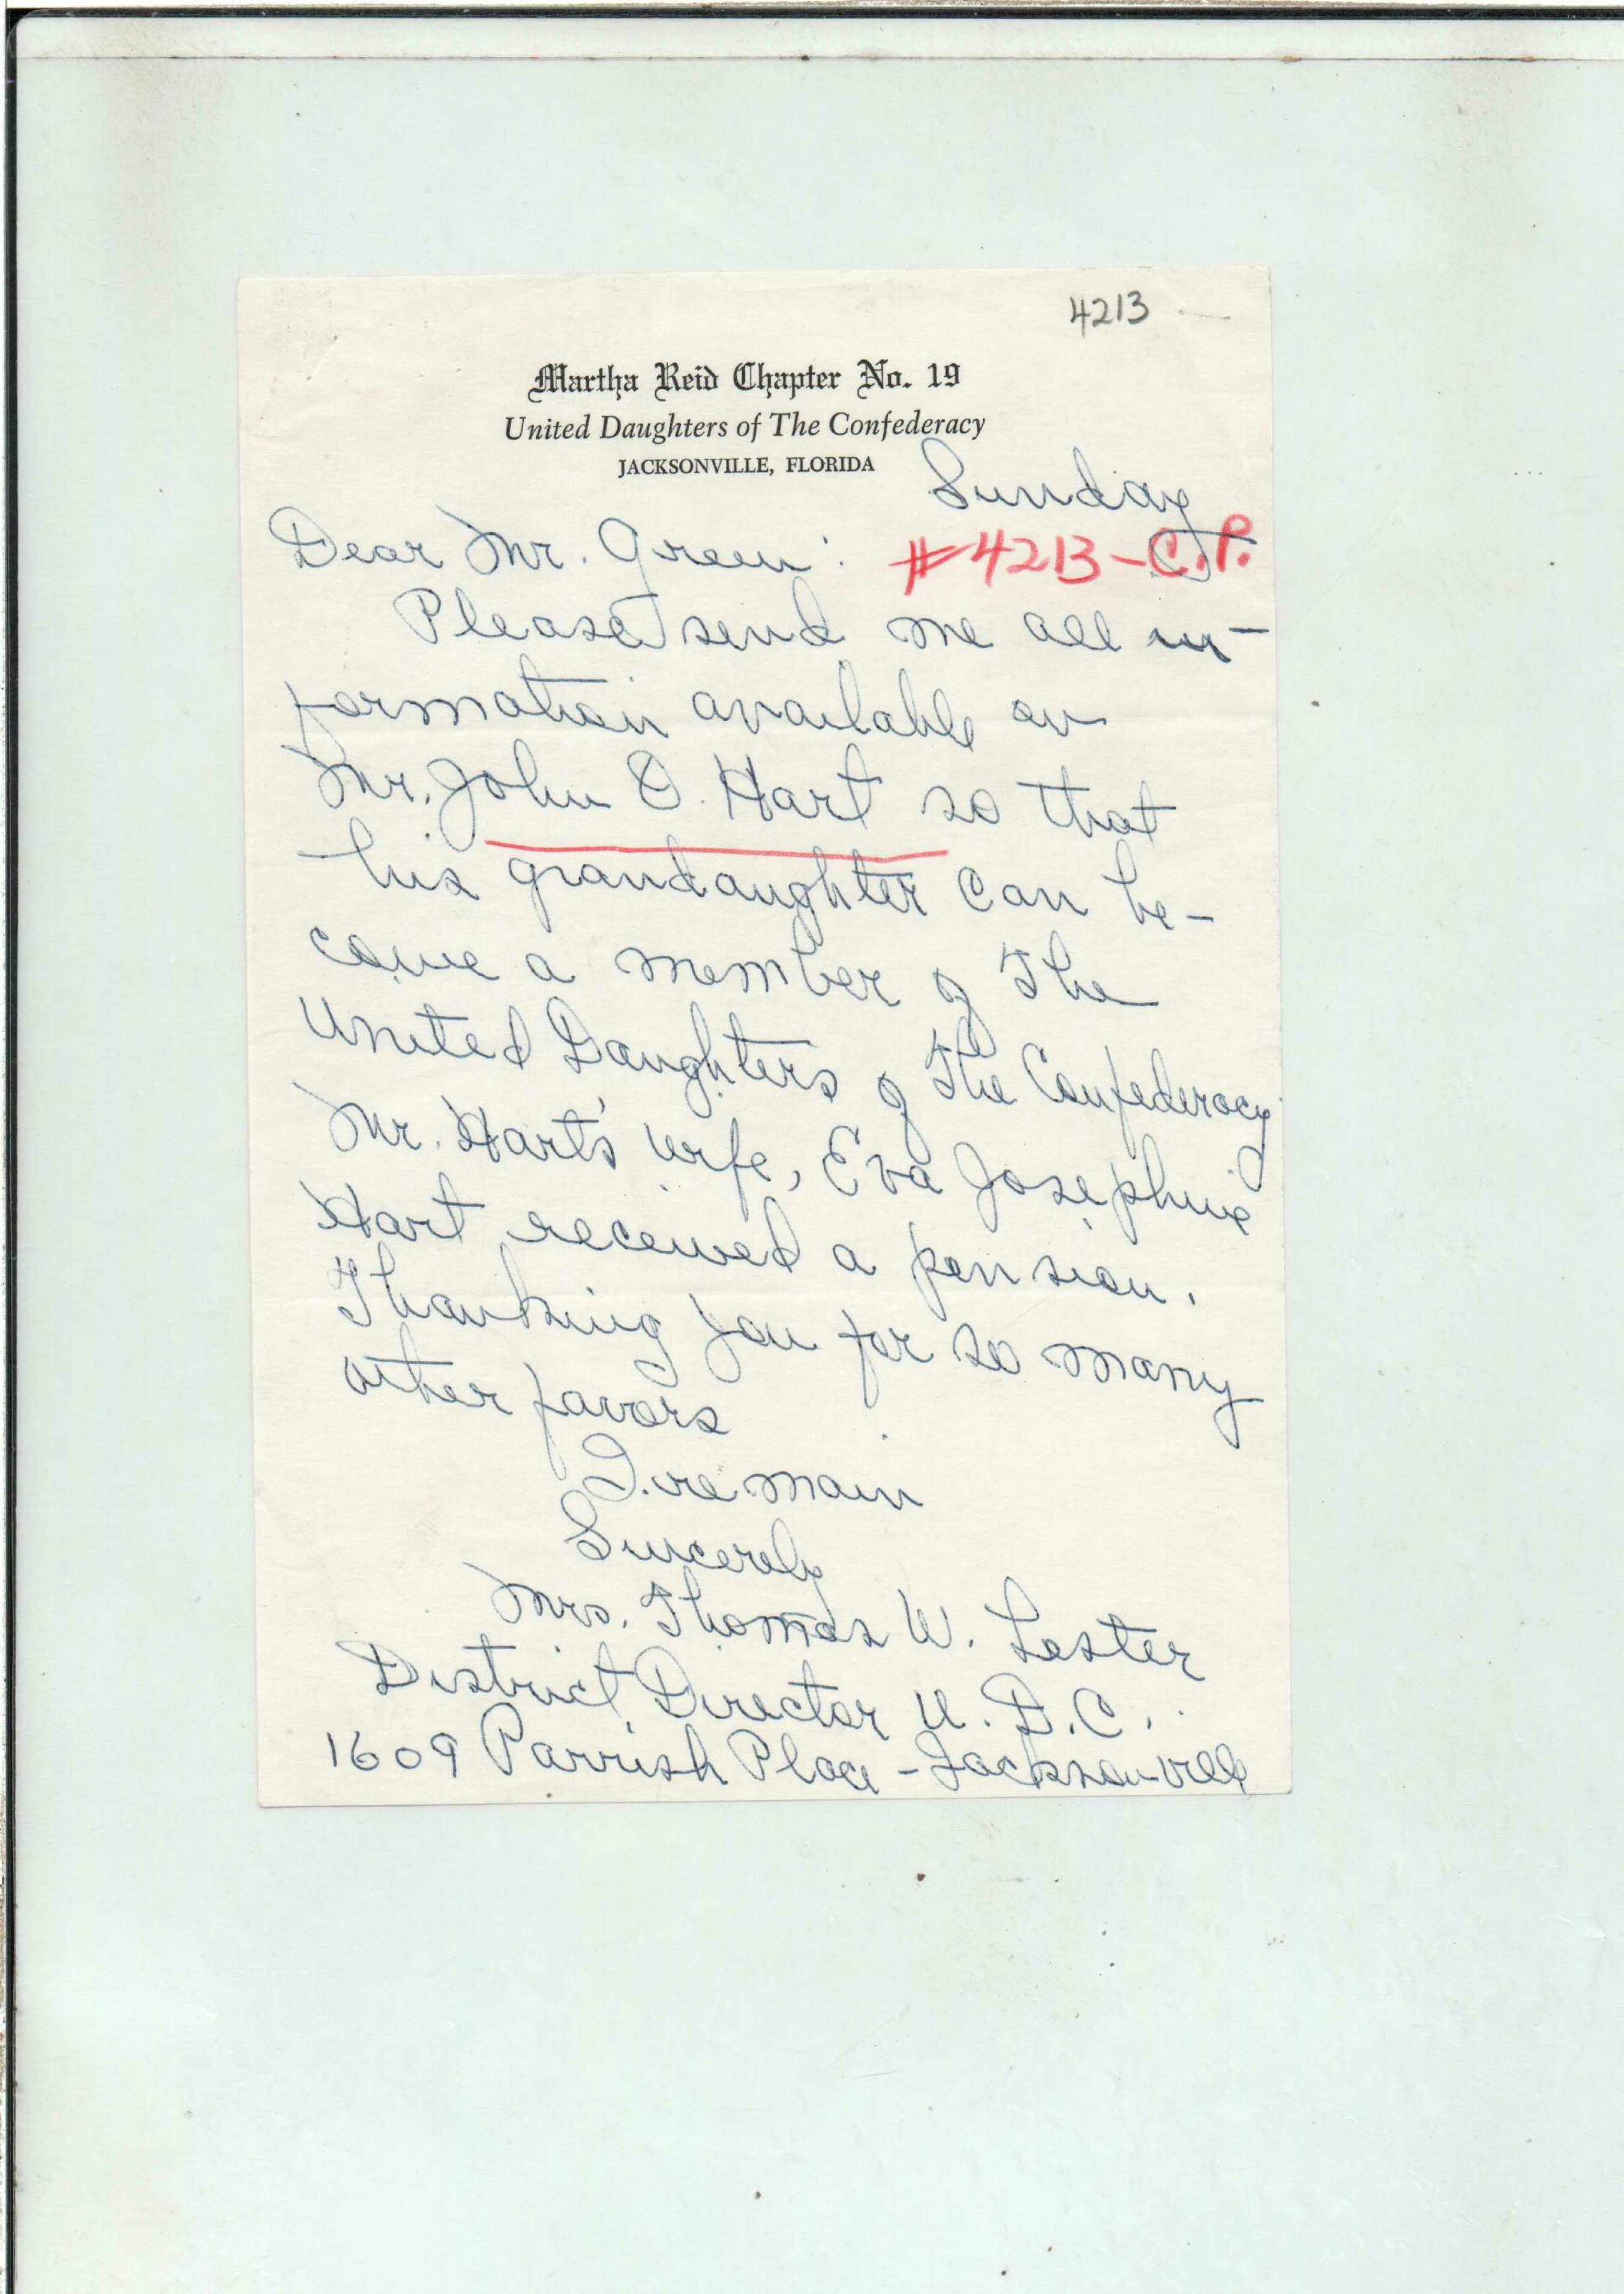 4213
Martha Reid Chapter No. 19
United Daughters of The Confederacy
JACKSONVILLE, FLORIDA
Sunday
Dear Mr. Green:
#4213-C.P.
Please send me all in-
formation available on
Mr. John O. Hart so that
his grandaughter can be-
come a member of The
United Daughters of The Confederacy
Mr. Hart's wife, Eva Josephine
Hart received a pension.
Thanking you for so many
other favors
I remain
Sincerely
Mrs. Thomas W. Lester
District Director U. D. C.
1609 Parrish Place - Jacksonville